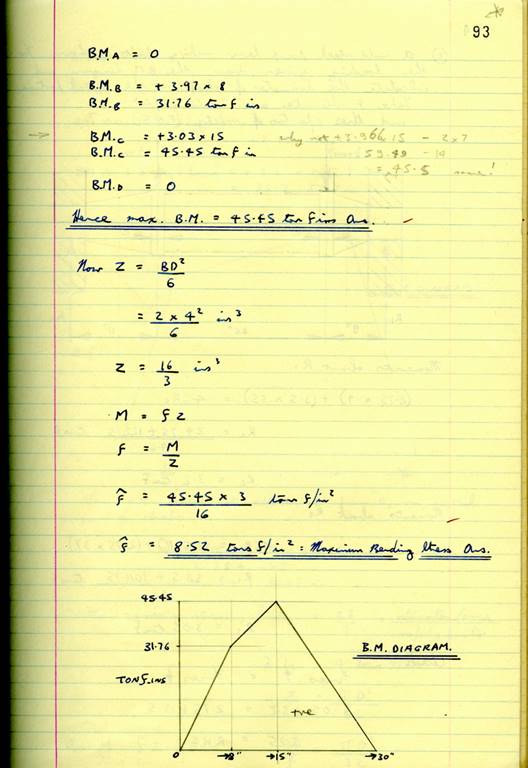 93
B.M.A = 0
B.M.B = + 3.97 x 8
B.M.B = 31.76 tonf ins
B.M.C = +3.03 x 15 why not +3.966 x 15 - 2x7
B.M.C = 45.45 tonf in 59.49 - 14
= 45.5 same!
B.M.D = 0
Hence max. B.M. = 45.45 tonf ins Ans.
Now Z = BD²/6
= 2 x 4²/6 ins³
Z = 16/3 ins³
M = f z
f = M/Z
f̂ = 45.45 x 3/16 tonf/in²
f̂ = 8.52 tonsf/in² = Maximum Bending Stress Ans.
45.45
31.76
B.M. DIAGRAM.
TONF.INS
+ve
0 →8" →15" →30"